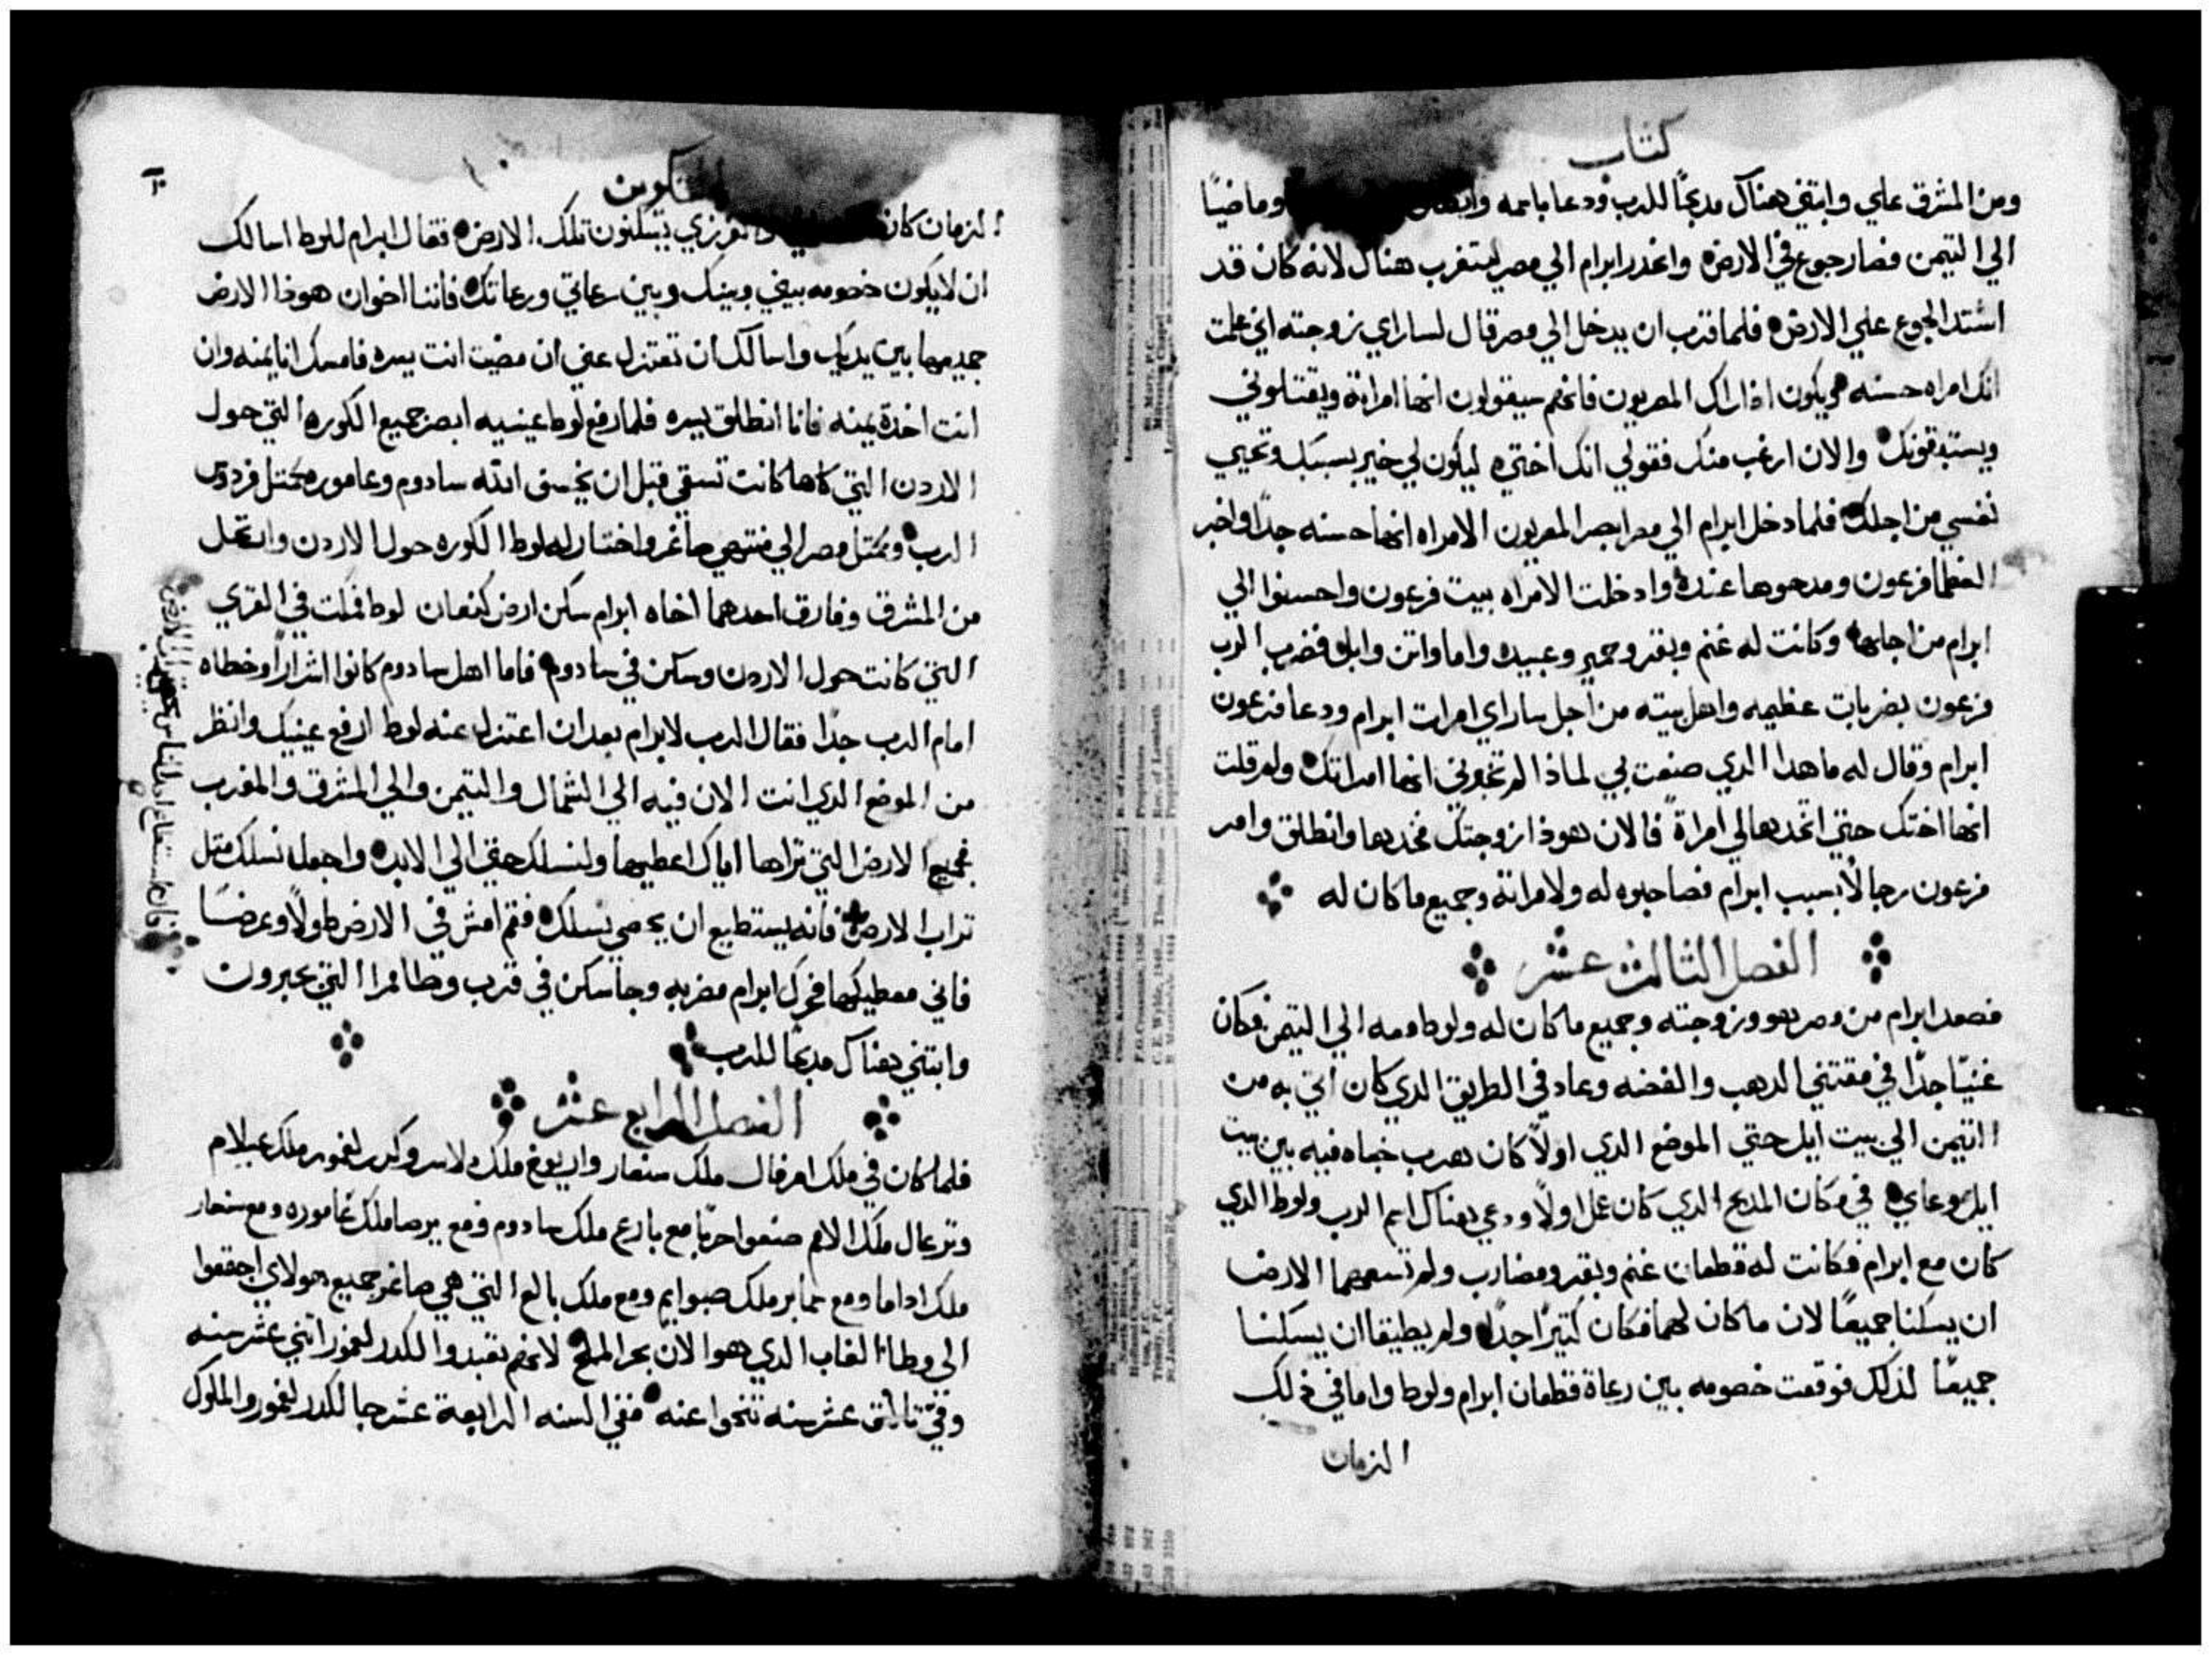 كتاب
ومن المشرق عاي وابتني هناك مدبحًا للرب ودعا باسمه وماضيًا
الي التيمن فصار جوع في الارض وانحدر ابرام الي مصر ليتغرب هناك لانه كان قد
اشتد الجوع علي الارض فلما قرب ان يدخل الي مصر قال لساراي زوجته اني علمت
انك امراه حسنه ويكون اذا راك المصريون فانهم سيقولون انها امراته ويقتلوني
ويستبقونك والان ارغب منك فقولي انك اختي ليكون لي خير بسببك وتحيي
نفسي من اجلك فلما دخل ابرام الي مصر ابصر المصريون الامراه انها حسنه جدًا واخبر
العظما فرعون ومدحوها عنده وادخلت الامراه بيت فرعون واحسنوا الي
ابرام من اجلها وكانت له غنم وبقر وحمير وعبيد واما واتن وابل فضرب الرب
فرعون بضربات عظيمه واهل بيته من اجل ساراي امرات ابرام ودعا فرعون
ابرام وقال له ما هدا الدي صنعت بي لماذا لم تخبرني انها امراتك ولم قلت
انها اختك حتي اتخدها لي امراةً فالان هوذا زوجتك فخدها وانطلق وامر
فرعون رجالًا بسبب ابرام فصاحبوه له ولامراته وجميع ما كان له
الفصل الثالث عشر
فصعد ابرام من مصر هو وزوجته وجميع ما كان له ولوط معه الي التيمن فكان
غنيًا جدًا في مقتني الدهب والفضه وعاد في الطريق الدي كان اتي به من
التيمن الي بيت ايل حتي الموضع الدي اولًا كان ضرب خباه فيه بين بيت
ايل وعاي في مكان المدبح الدي كان عمل اولًا ودعي هناك اسم الرب ولوط الدي
كان مع ابرام فكانت له قطعان غنم وبقر ومضارب ولم تسعهما الارض
ان يسكنا جميعًا لان ما كان لهما فكان كتيرًا جدًا ولم يطيقا ان يسكنا
جميعًا لذلك فوقعت خصومه بين رعاة قطعان ابرام ولوط واما في ذلك
الزمان
التكوين
١٠
الزمان كان والفرزي يسكنون تلك الارض فقال ابرام للوط اسالك
ان لا يكون خصومه بيني وبينك وبين رعاتي ورعاتك فاننا اخوان هوذا الارض
جميعها بين يديك واسالك ان تعتزل عني ان مضيت انت يسره فامسك انا يمنه وان
انت اخدة يمنه فانا انطلق يسره فلما رفع لوط عينيه ابصر جميع الكوره التي حول
الاردن التي كلها كانت تسقي قبل ان يخسف الله سادوم وعاموره كمتل فردوس
الرب وكمتل مصر الي منتهي صاغر واختار له لوط الكوره حول الاردن وانتقل
من المشرق وفارق احدهما اخاه ابرام سكن ارض كنعان لوط فمكت في القري
التي كانت حول الاردن وسكن في سادوم فاما اهل سادوم كانوا اشرارًا وخطاه
امام الرب جدًا فقال الرب لابرام بعد ان اعتزل عنه لوط ارفع عينيك وانظر
من الموضع الدي انت الان فيه الي الشمال والتيمن والي المشرق والمغرب
فجميع الارض التي تراها اياك اعطيها ولنسلك حتي الي الابد واجعل نسلك متل
تراب الارض فانه يستطيع ان يحصي نسلك فقم امش في الارض طولًا وعرضًا
فاني معطيكها فحرك ابرام مضربه وجا سكن في قرب وطا ممرا التي بحبرون
وابتني هناك مدبحًا للرب
الفصل الرابع عشر
فلما كان في ملك امرفال ملك سنعار واريوخ ملك دلاسر وكدرلغمور ملك عيلام
وترعال ملك الامم صنعوا حربًا مع بارع ملك سادوم ومع برصا ملك غاموره ومع سنعار
ملك اداما ومع سمابر ملك صبوايم ومع ملك بالع التي هي صاغر جميع هولاي اجتمعوا
الي وطا الغاب الدي هو الان بحر الملح لانهم تعبدوا لكدرلغمور اتني عشر سنه
وفي تالت عشر سنه تنحوا عنه ففي السنه الرابعة عشر جا لكدرلغمور والملوك
فان استطاع احد الناس يحصي تراب الارض